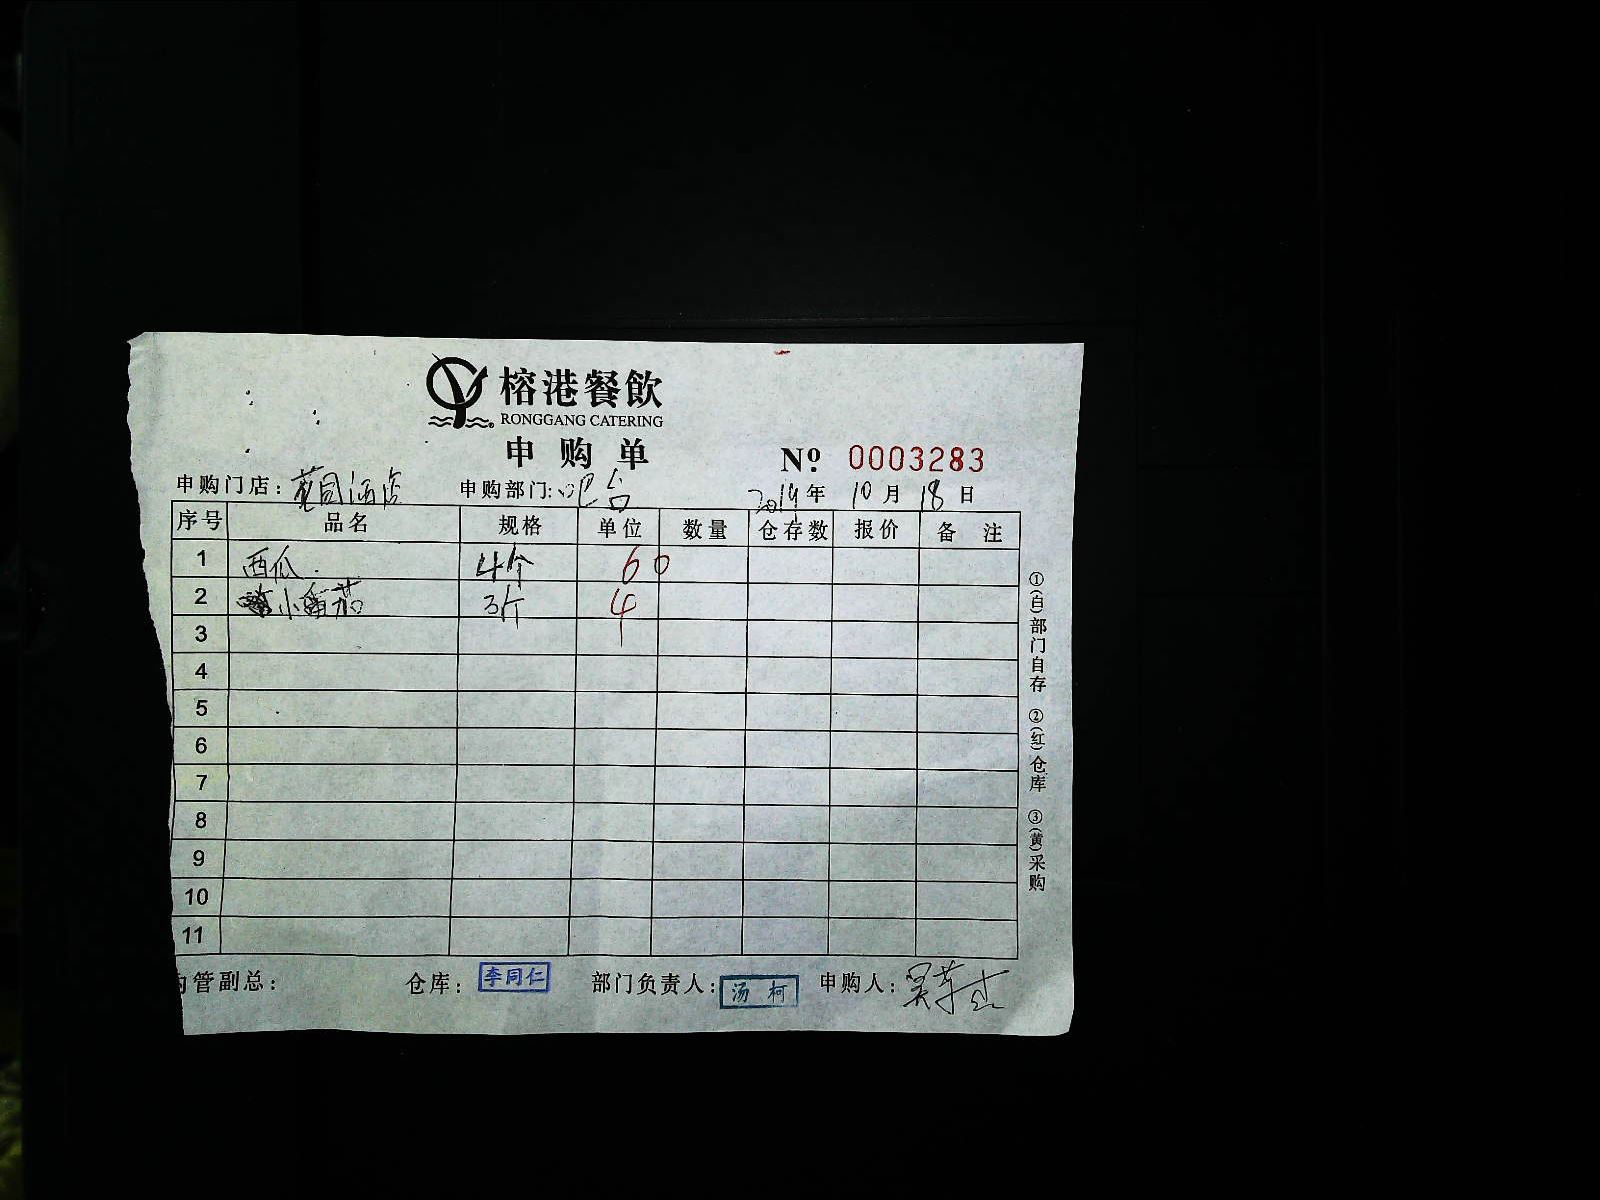 榕港餐飲
RONGGANG CATERING
申购单
№ 0003283
申购门店：花园酒店 申购部门：吧台 2019年 10月 18日
序号 品名 规格 单位 数量 仓存数 报价 备注
1 西瓜 4个 60
2 小番茄 3斤 4
3
4
5
6
7
8
9
10
11
①(白)部门自存 ②(红)仓库 ③(黄)采购
内管副总： 仓库：李同仁 部门负责人：汤柯 申购人：吴